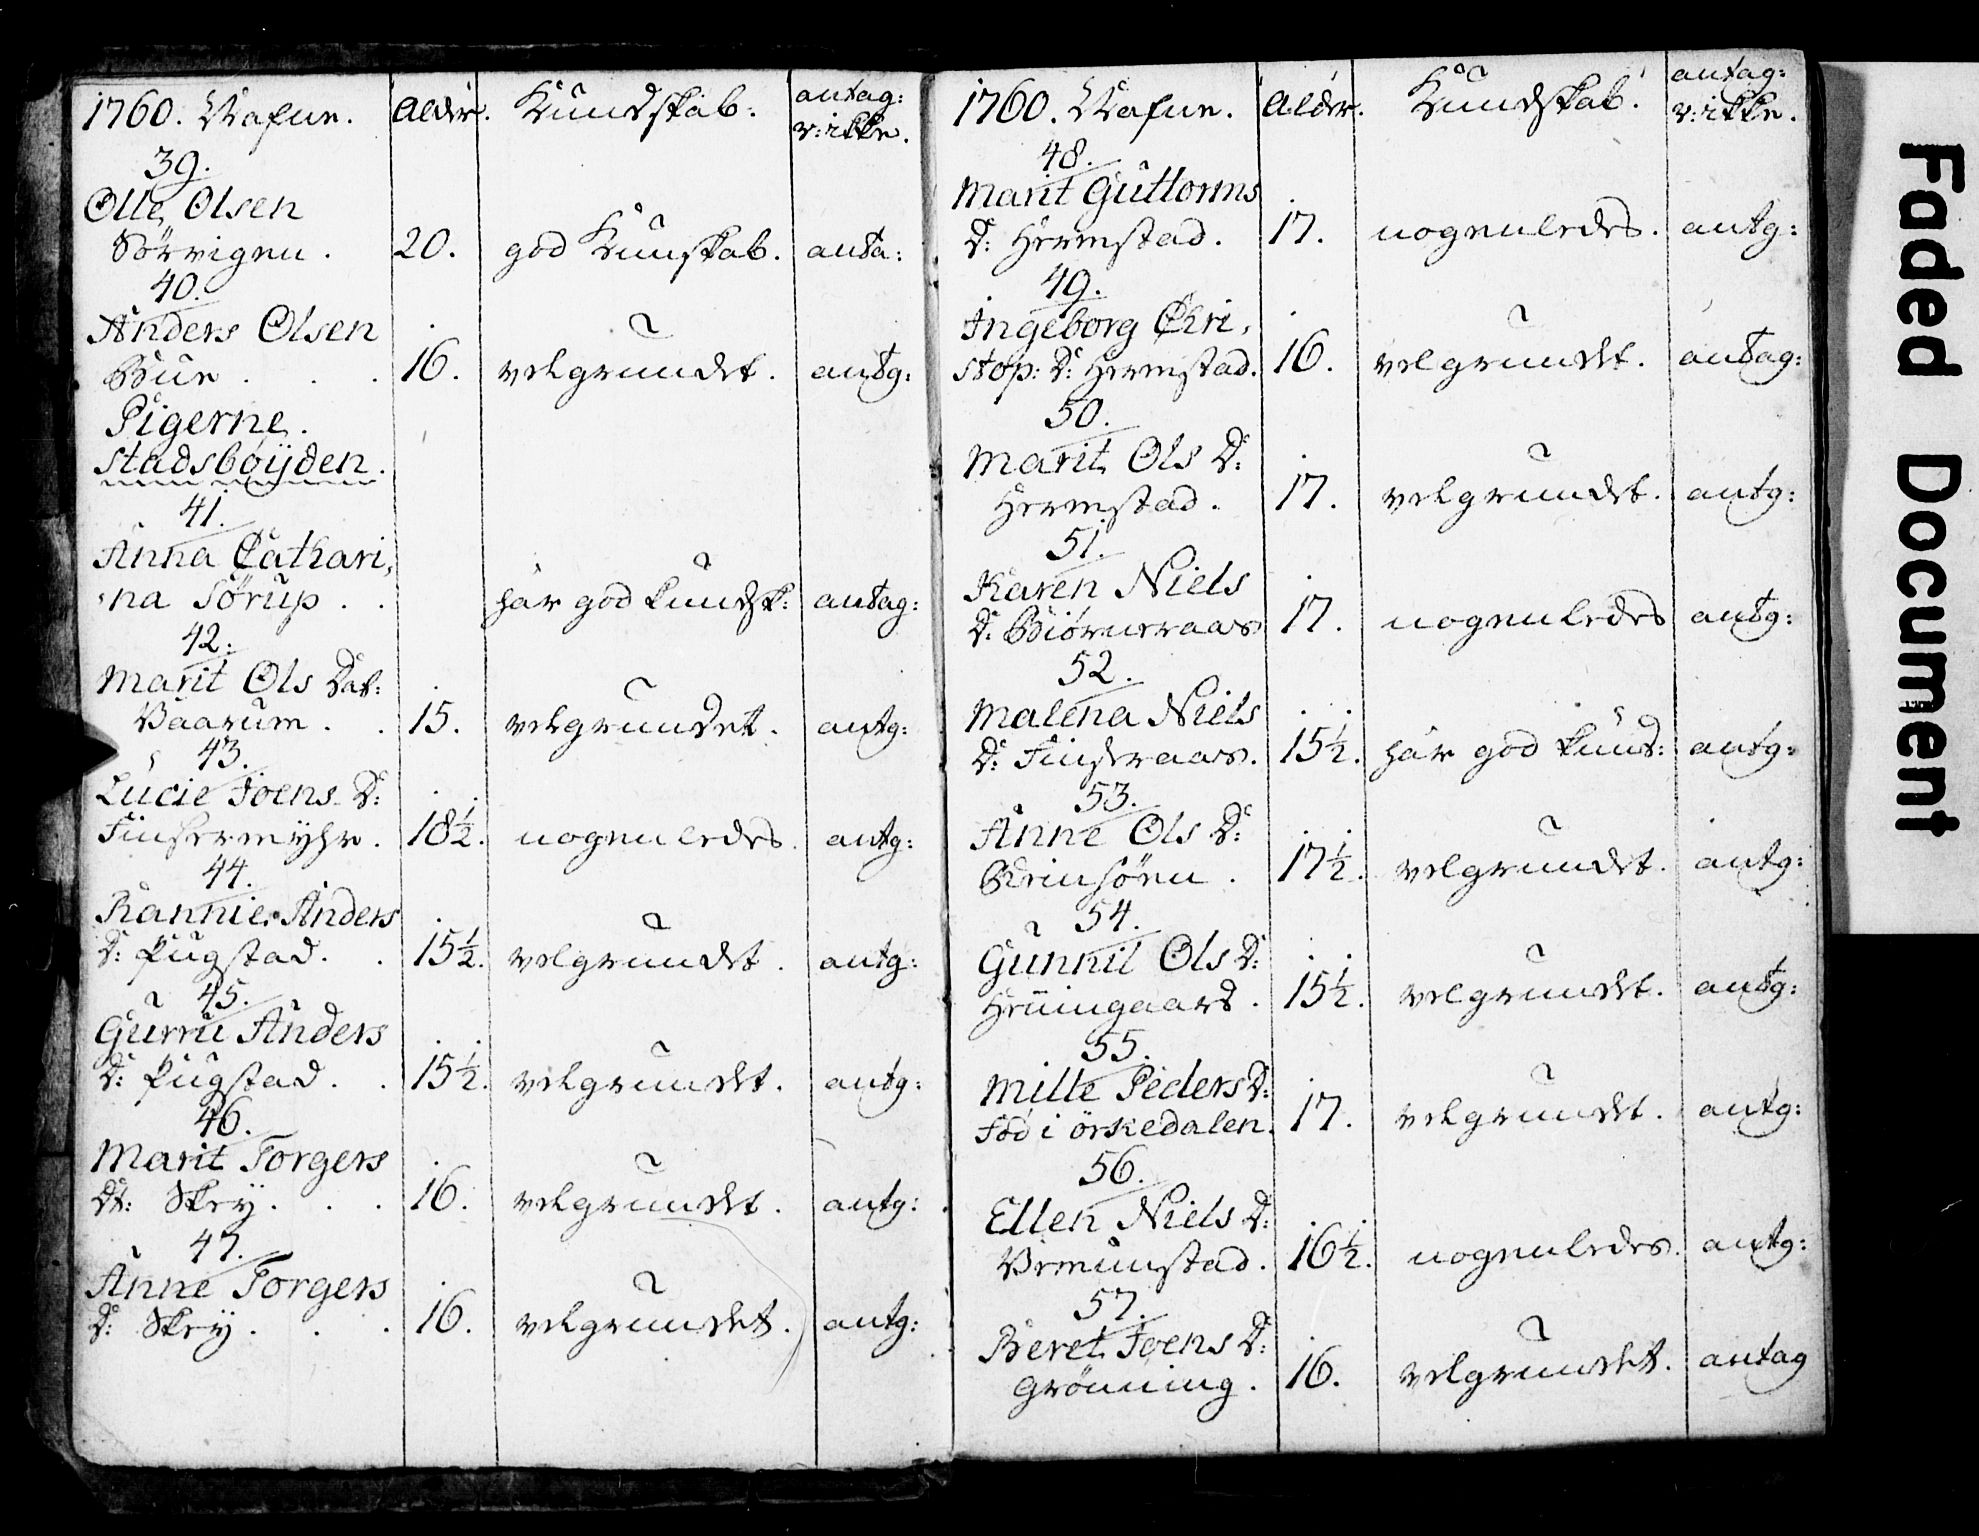 1760. Nafne. Aldr. Kundskab. antag:
v: ikke.
39.
Olle Olsen
Sörvigen. 20. god Kunskab. anta:
40.
Anders Olsen
Bue . . . 16. velgrundet. antg:
Pigerne.
Stadsböÿden.
41.
Anna Cathari,
na Sörup . . har god kundsk: antag:
42.
Marit Ols Dat:
Vaarum . . 15. velgrundet. antg:
43.
Lucie Joens D:
18½. nogenledes. antg:
44.
Rannie Anders
D: Pugstad. . 15½. velgrundet. antg:
45.
Gurru Anders
D: Pugstad . . 15½. velgrundet. antg:
46.
Marit Torgers
Dt: Skey . . . 16. velgrundet. antg:
47.
Anne Torgers
D: Skey . . . 16. velgrundet. antg:
1760. Nafne. Aldr. Kundskab. antag:
v: ikke.
48.
Marit Guttorms
D: Hermstad. 17. nogenledes. antg:
49.
Ingeborg Chri,
stop: D: Hermstad. 16. velgrundet. antag:
50.
Marit Ols D:
Hermstad. 17. velgrundet. antg:
51.
Karen Niels
D: Biørneraas 17. nogenledes antg:
52.
Malena Niels
D: Finseraas. 15½. har god kund: antg:
53.
Anne Ols D:
Reinsören . 17½. velgrundet. antg:
54.
Gunnil Ols D:
15½. velgrundet. antg:
55.
Mille Peders D:
Föd i örkedalen. 17. velgrundet. antg:
56.
Ellen Niels D:
Vemunstad. 16½. nogenledes. antg:
57.
Beret Joens D:
Grönning. 16. velgrundet. antag
Faded Document